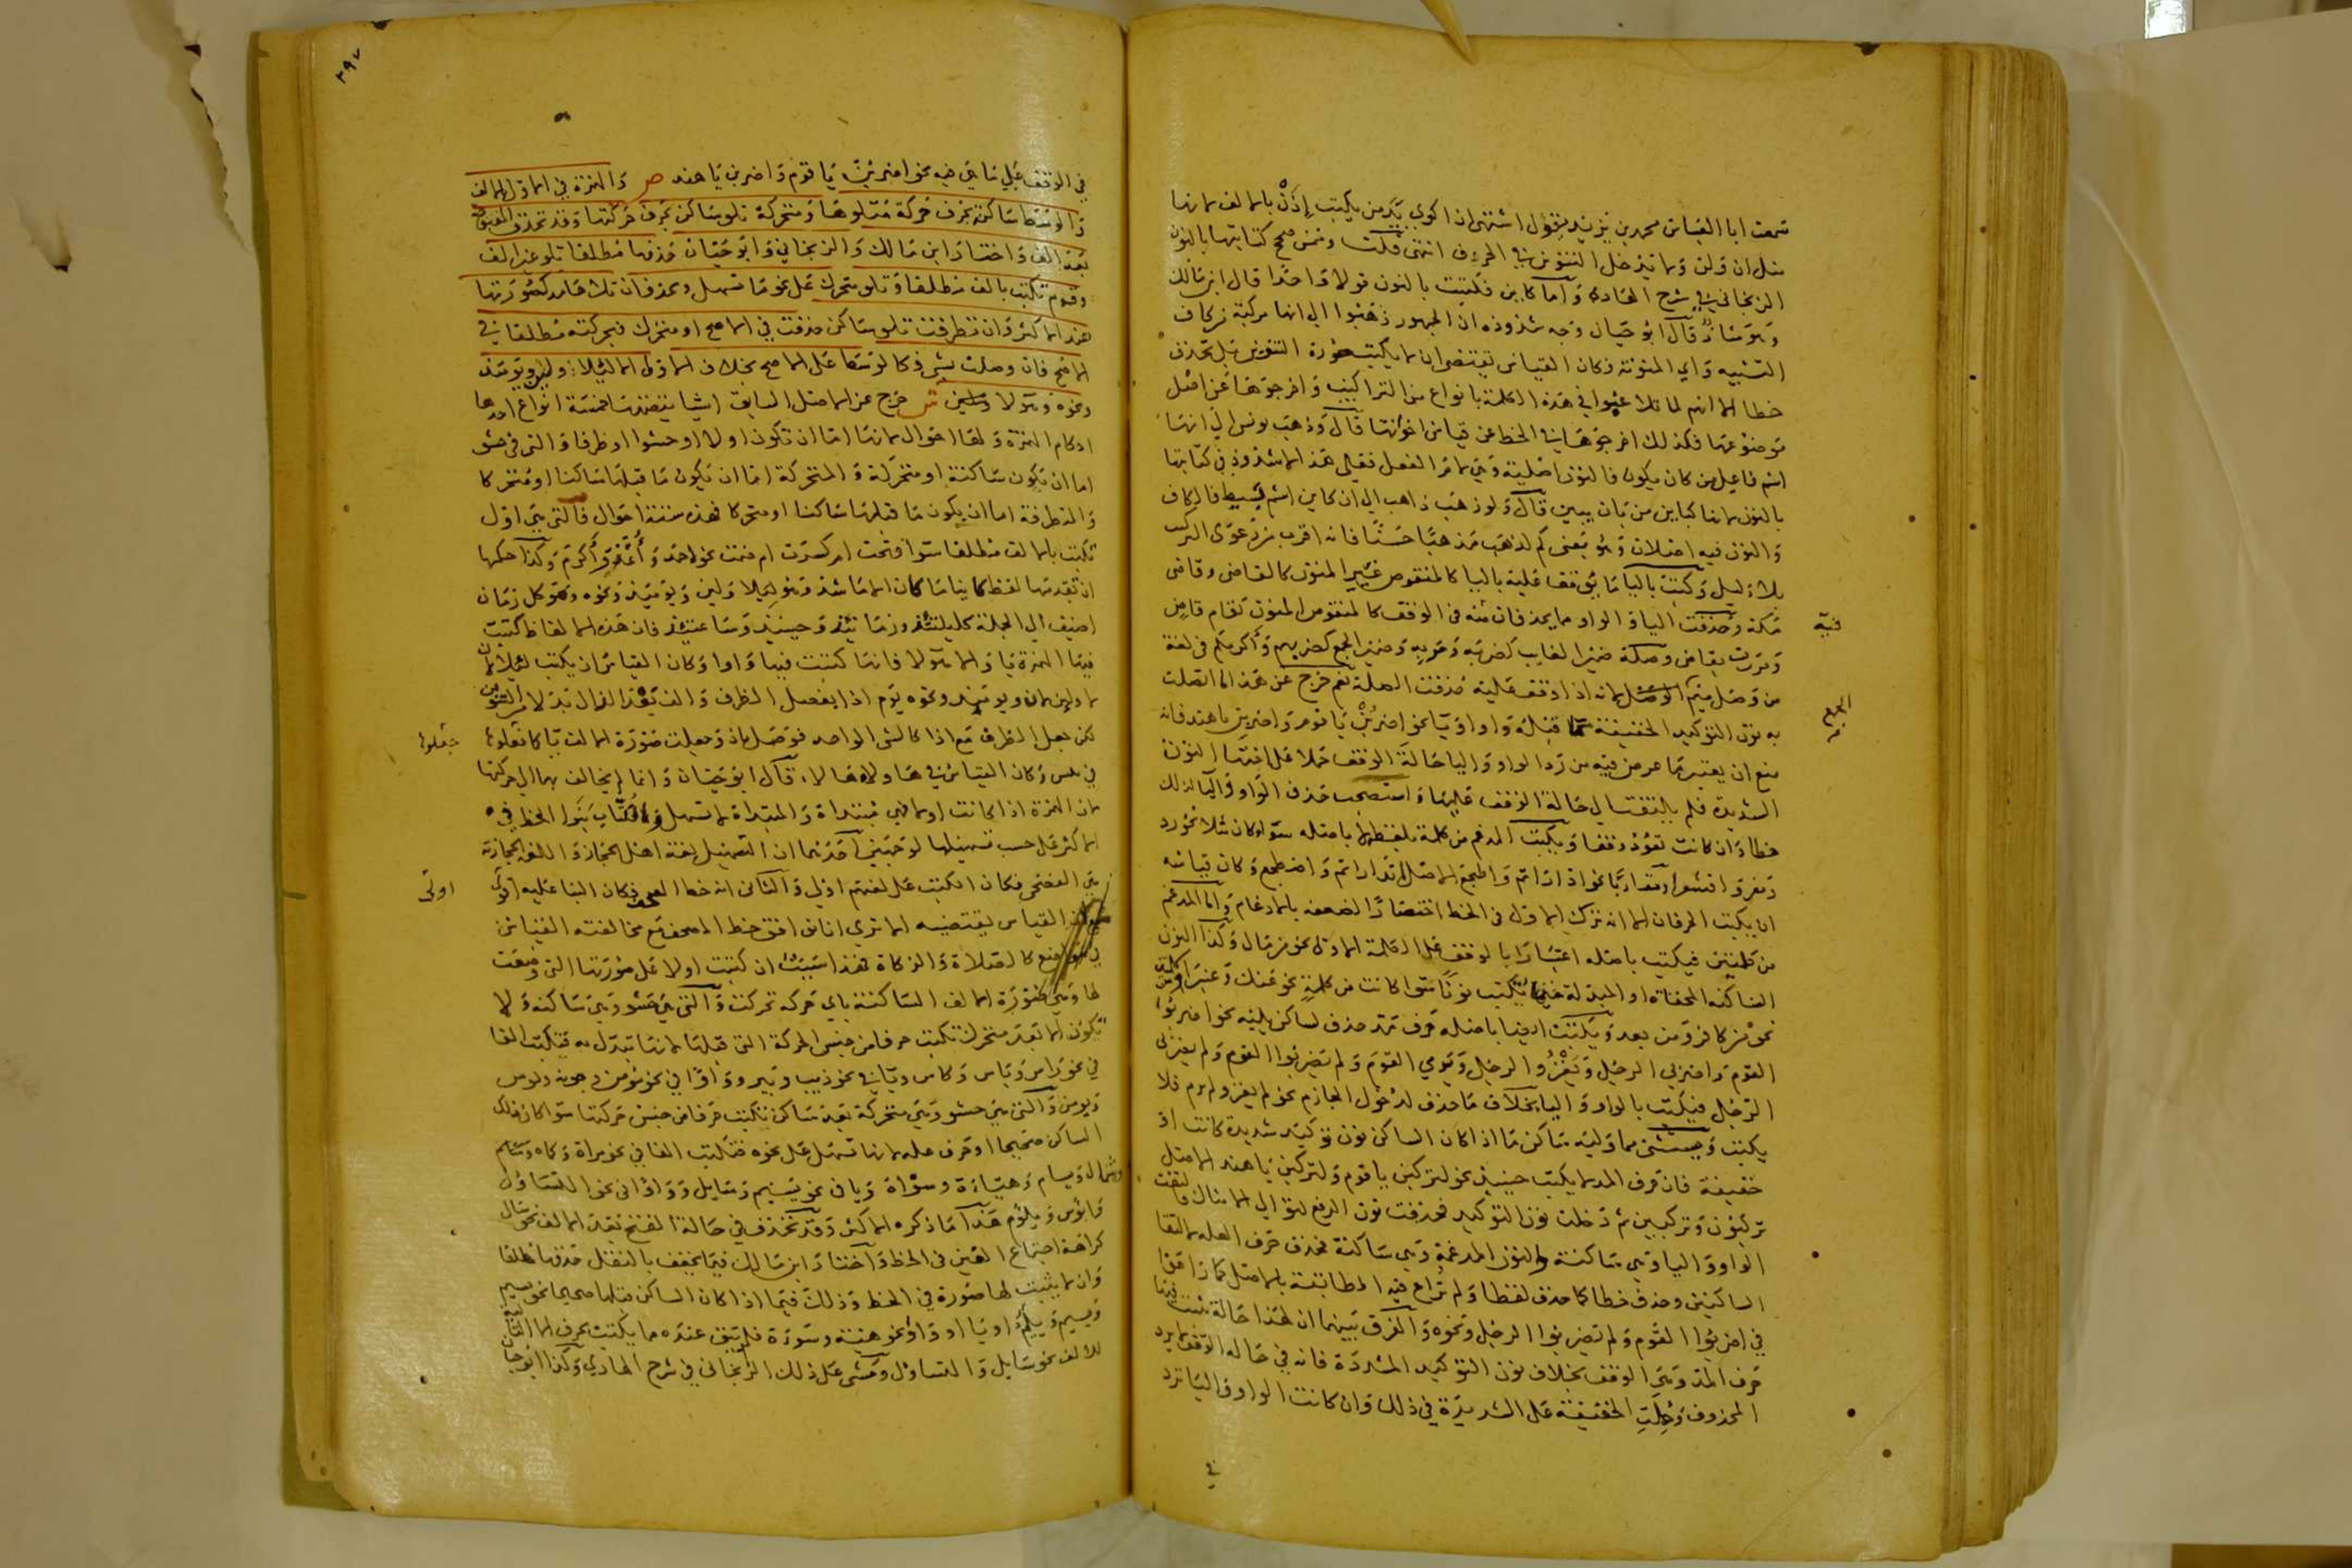 سمعت ابا العباس محمد بن يزيد يقول اشتهي ان اكوي يد من يكتب إذن بالالف لانها
مثل ان ولن ولا يدخل التنوين في الحروف انتهى قلت وممن صحح كتابتها بالنون
الزنجاني في شرح الهادي واما كاين فكتبت بالنون قولا واحدا قال ابن مالك
وهو شاذ قال ابو حيان وجه شذوذه ان الجمهور ذهبوا الى انها مركبة من كاف
التشبيه واي المنونة فكان القياس يقتضي ان لا يكتب صورة التنوين بل تحذف
خطا الا انهم لما تلاعبوا في هذه الكلمة بانواع من التراكيب واخرجوها عن اصل
موضوعها فكذلك اخرجوها في الخط عن قياس اخواتها قال وذهب يونس الى انها
اسم فاعل من كان يكون فالنون اصلية وهي لام الفعل فعلى هذا لا شذوذ في كتابتها
بالنون لانها كباين من بان يبين قال ولو ذهب ذاهب الى ان كاين اسم بسيط فالكاف
والنون فيه اصلان وهو بمعنى كم لذهب مذهبا حسنا فانه اقرب من دعوى التركيب
بلا دليل وكتبت بالياء ما يوقف عليه بالياء كالمنقوص غير المنون كالقاضي وقاضي
مكة وحذفت الياء والواو مما يحذفان منه في الوقف كالمنقوص المنون كقام قاض
ومررت بقاض وصلة ضمير الغايب كضربه ومر به وضمير الجمع كضربهم واكرمكم في لغة
من وصل ميم الجمع لانه اذا وقف عليه حذفت الصلة نعم خرج عن هذا ما اتصلت
به نون التوكيد الخفيفة مما قبله واو او يا نحو اضربن يا قوم واضربن يا هند فانه
منع ان يعتبر ما عرض فيه من رد الواو واليا حالة الوقف حملا على اختها النون
الشديدة فلم يلتفت الى حالة الوقف عليها واستصحب حذف الواو واليا لذلك
خطا وان كانت تعود وقفا ويكتب المدغم من كلمة بلفظه لا باصله سواء كان مثلا نحو رد
ومفر واقشعر او متقاربا نحو اذ
ان يكتب الحرفان الا انه ترك الاول في الخط اختصارا لضعفه بالادغام واما المدغم
من كلمتين فيكتب باصله اعتبارا بالوقف على الكلمة الاولى نحو من مال وكذا النون
الساكنة المخفاة او المبدلة تكتب نونا سوا كانت من كلمة نحو عنك وعنبر او كلمتين
نحو من كافر ومن بعد ويكتب ايضا باصله حرف مد حذف لساكن يليه نحو اضربوا
القوم واضربي الرجل ويغزو الرجل ويرمي القوم ولم تضربوا القوم ولم تضربي
الرجل فيكتب بالواو واليا بخلاف ما حذف لدخول الجازم نحو لم يغز ولم يرم فلا
يكتب ويستثنى مما وليه ساكن ما اذا كان الساكن نون توكيد شديدة كانت او
خفيفة فان حرف المد لا يكتب حينئذ نحو لتركبن يا قوم ولتركبن يا هند الاصل
تركبون وتركبين ثم دخلت نون التوكيد فحذفت نون الرفع لتوالي الامثال فالتقت
الواو واليا وهي ساكنة والنون المدغمة وهي ساكنة فحذف حرف العلة لالتقا
الساكنين وحذف خطا كما حذف لفظا ولم تراع فيه المطابقة بالاصل كما وافق
في اضربوا القوم ولم تضربوا الرجل ونحوه والفرق بينهما ان لهذا حالة يثبت فيها
حرف المد وهي الوقف بخلاف نون التوكيد المشددة فانه في حالة الوقف لا يرد
المحذوف وحملت الخفيفة على الشديدة في ذلك وان كانت الواو واليا ترد
في
٢٩٧
في الوقف على ما هي فيه نحو اضربن يا قوم واضربن يا هند ص والهمزة في الاول الف
ووسطا ساكنة بحرف حركة متلوها ومتحركة تلو ساكن بحرف حركتها وقد تحذف المفتوحة
بعد الف واختار ابن مالك والزنجاني وابو حيان حذفها مطلقا تلو غير الف
وقوم تكتب بالف مطلقا وتلو متحرك على نحو ما تسهل
هند الاكثر وان تطرفت تلو ساكن حذفت في الاصح او متحرك فبحركته مطلقا في
الاصح فان وصلت بشي فكالوسطا على الاصح بخلاف الاولى الا لئلا ولئن ويومئذ
ونحوه وهولا ش خرج عن الاصل السابق اشيا نفصلها خمسة انواع احدها
احكام الهمزة ولها احوال لانها اما ان تكون اولا او حشوا او طرفا والتي في حشو
اما ان تكون ساكنة او متحركة والمتحركة اما ان تكون ما قبلها ساكنا او متحركا
والمتطرفة اما ان يكون ما قبلها ساكنا او متحركا فهذه ستة احوال فالتي هي اول
تكتب بالالف مطلقا سوا فتحت ام كسرت ام ضمت نحو احد وكذا حكمها
ان تقدمها لفظ كاينا ما كان الا ما شذ وهو لئلا ولئن ويومئذ ونحوه وهو كل زمان
اضيف الى الجملة كليلتئذ وزمانئذ وحينئذ وساعتئذ فان هذه الالفاظ كتبت
فيها الهمزة يا والا هولا فانها كتبت فيها واوا وكان القياس ان يكتب لئلا لان
لكن جعل الظرف مع اذا كالشي الواحد فوصل باذ وجعلت صورة الالف يا كما فعلوا
في وكان القياس في هاولا ها لا قال ابو حيان وانما لم يخالف بها الى حركتها
لان الهمزة اذا كانت اولا فهي مبتداة والمبتداة لا تسهل والكتاب بنوا الخط في
الاكثر على حسب تسهيلها لوجهين احدهما ان التسهيل لغة اهل الحجاز واللغة الحجازية
هي الفصحى فكان الكتب على لغتهم اولى والثاني انه خط المصحف فكان البنا عليه اولى
القياس يقتضيه الا ترى انا نوافق خط المصحف مع مخالفته القياس
في مواضع كالصلاة والزكاة فهذا سبب ان كتبت اولا على صورتها التي وضعت
لها وهي صورة الالف الساكنة باي حركة تحركت والتي هي حشو وهي ساكنة ولا
تكون الا بعد متحرك تكتب حرفا من جنس الحركة التي قبلها لانها تبدل به فتكتب الفا
في نحو راس وباس وكاس ويا في نحو ذيب وبير وواوا في نحو مومن وجونة وبوس
ويومن والتي هي حشو وهي متحركة بعد ساكن تكتب حرفا من جنس حركتها سوا كان ذلك
الساكن صحيحا او حرف علة لانها تسهل على نحوه فتكتب الفا في نحو مراة وكماة
وشمال وهياءة وسواة ويا في نحو ييئس وسايل وواوا في نحو التساول
وابوس ويلؤم هذا ما ذكره الاكثر وقد تحذف في حالة الفتح بعد الالف نحو سال
كراهة اجتماع الفين في الخط واختار ابن مالك فيما يخفف بالنقل حذفها مطلقا
وان لا يثبت لها صورة في الخط وذلك فيما اذا كان الساكن قبلها صحيحا نحو
او يا او واوا نحو هيئة وسوءة فلم يبق عنده ما يكتب بحرف الا التالية
للالف نحو سايل والتساول ومشى على ذلك الزنجاني في شرح الهادي وكذا ابو حيان
جعلوا
اولى